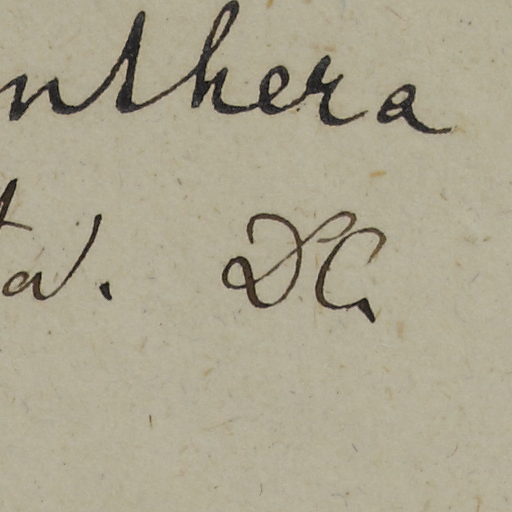 nthera
ta. DC.